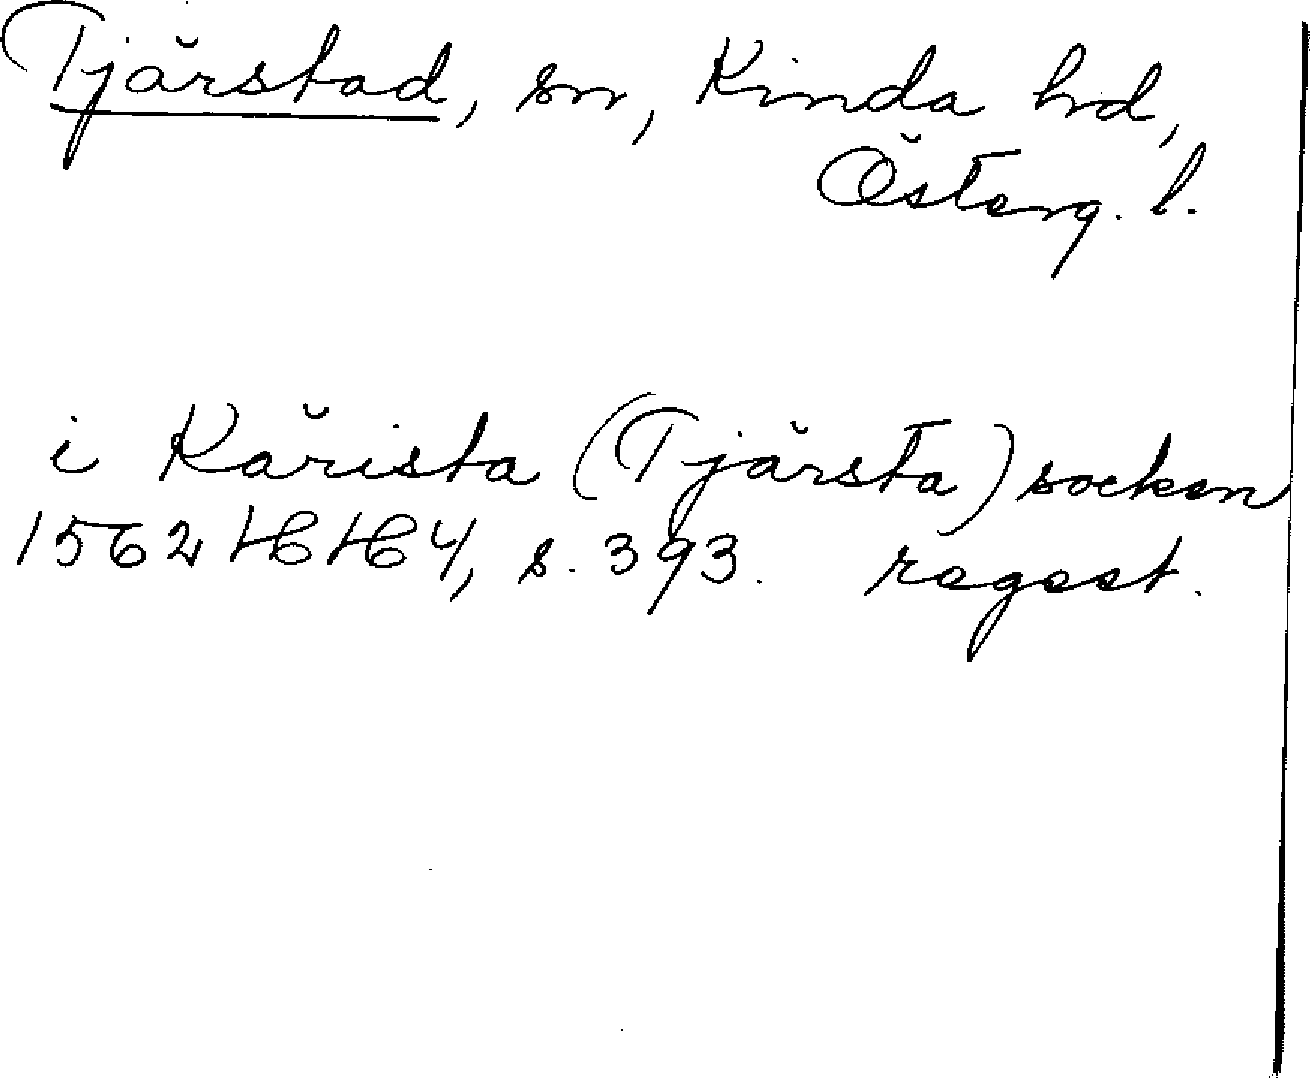 Tjärstad, sn, Kinda hd,
Österg. l.
i Kärista (Tjärsta) socken
1562 HH 4, s. 393. regest.